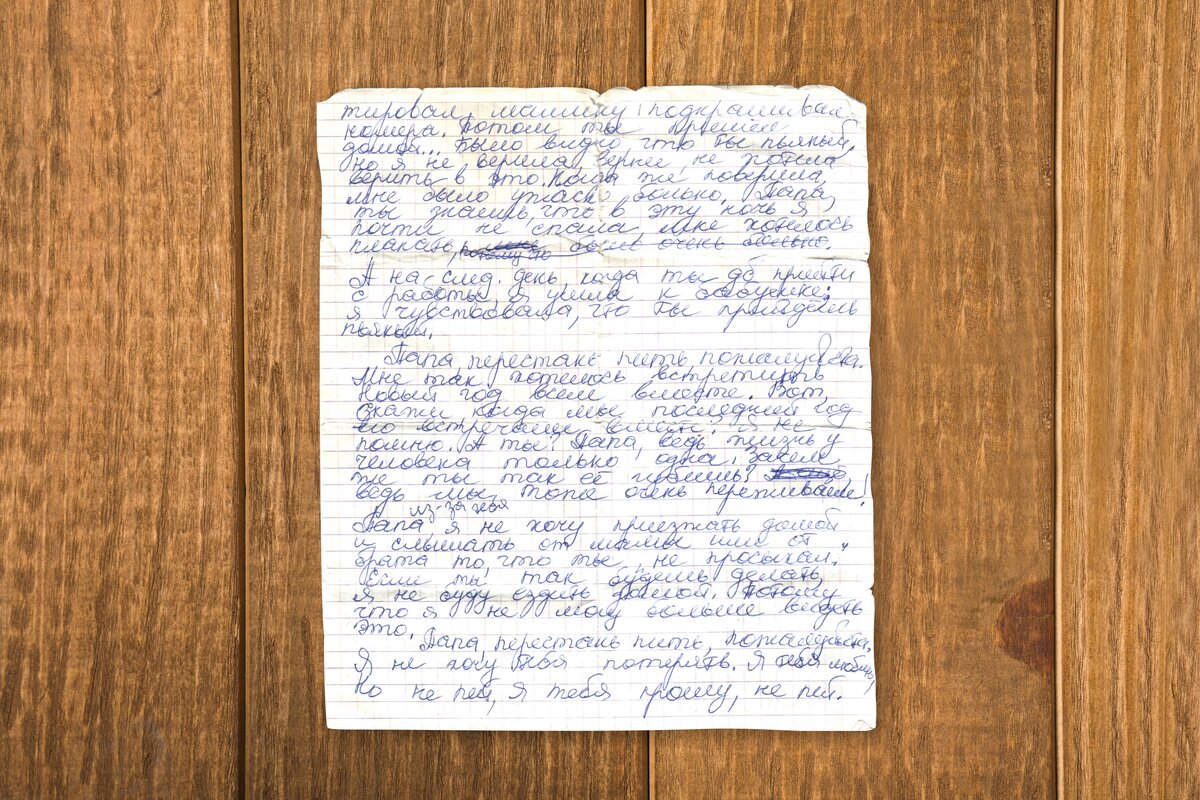 тировал машину, подкрашивал
номера. Потом ты пришел
домой... Было видно, что ты пьяный,
но я не верила, вернее не хотела
верить в это. Когда же поверила,
мне было ужасно больно. Папа,
ты знаешь, что в эту ночь я
почти не спала, мне хотелось
плакать, потому что было очень больно.
А на след. день, когда ты дб прийти
с работы, я ушла к бабушке:
я чувствовала, что ты придешь
пьяный.
Папа перестань пить, пожалуйста.
Мне так хотелось встретить
Новый год всем вместе. Вот,
скажи когда мы последний год
его встречали вместе? Я не
помню. А ты? Папа, ведь жизнь у
человека только одна. Зачем
же ты так её губишь?
ведь мы тоже очень переживаем!
из-за тебя
Папа я не хочу приезжать домой
и слышать от мамы или от
брата то, что ты "не просыхал."
Если ты так будешь делать,
я не буду ездить домой. Потому
что я не могу больше видеть
это.
Папа, перестань пить, пожалуйста.
Я не хочу тебя потерять. Я тебя люблю,
Но не пей, я тебя прошу, не пей.